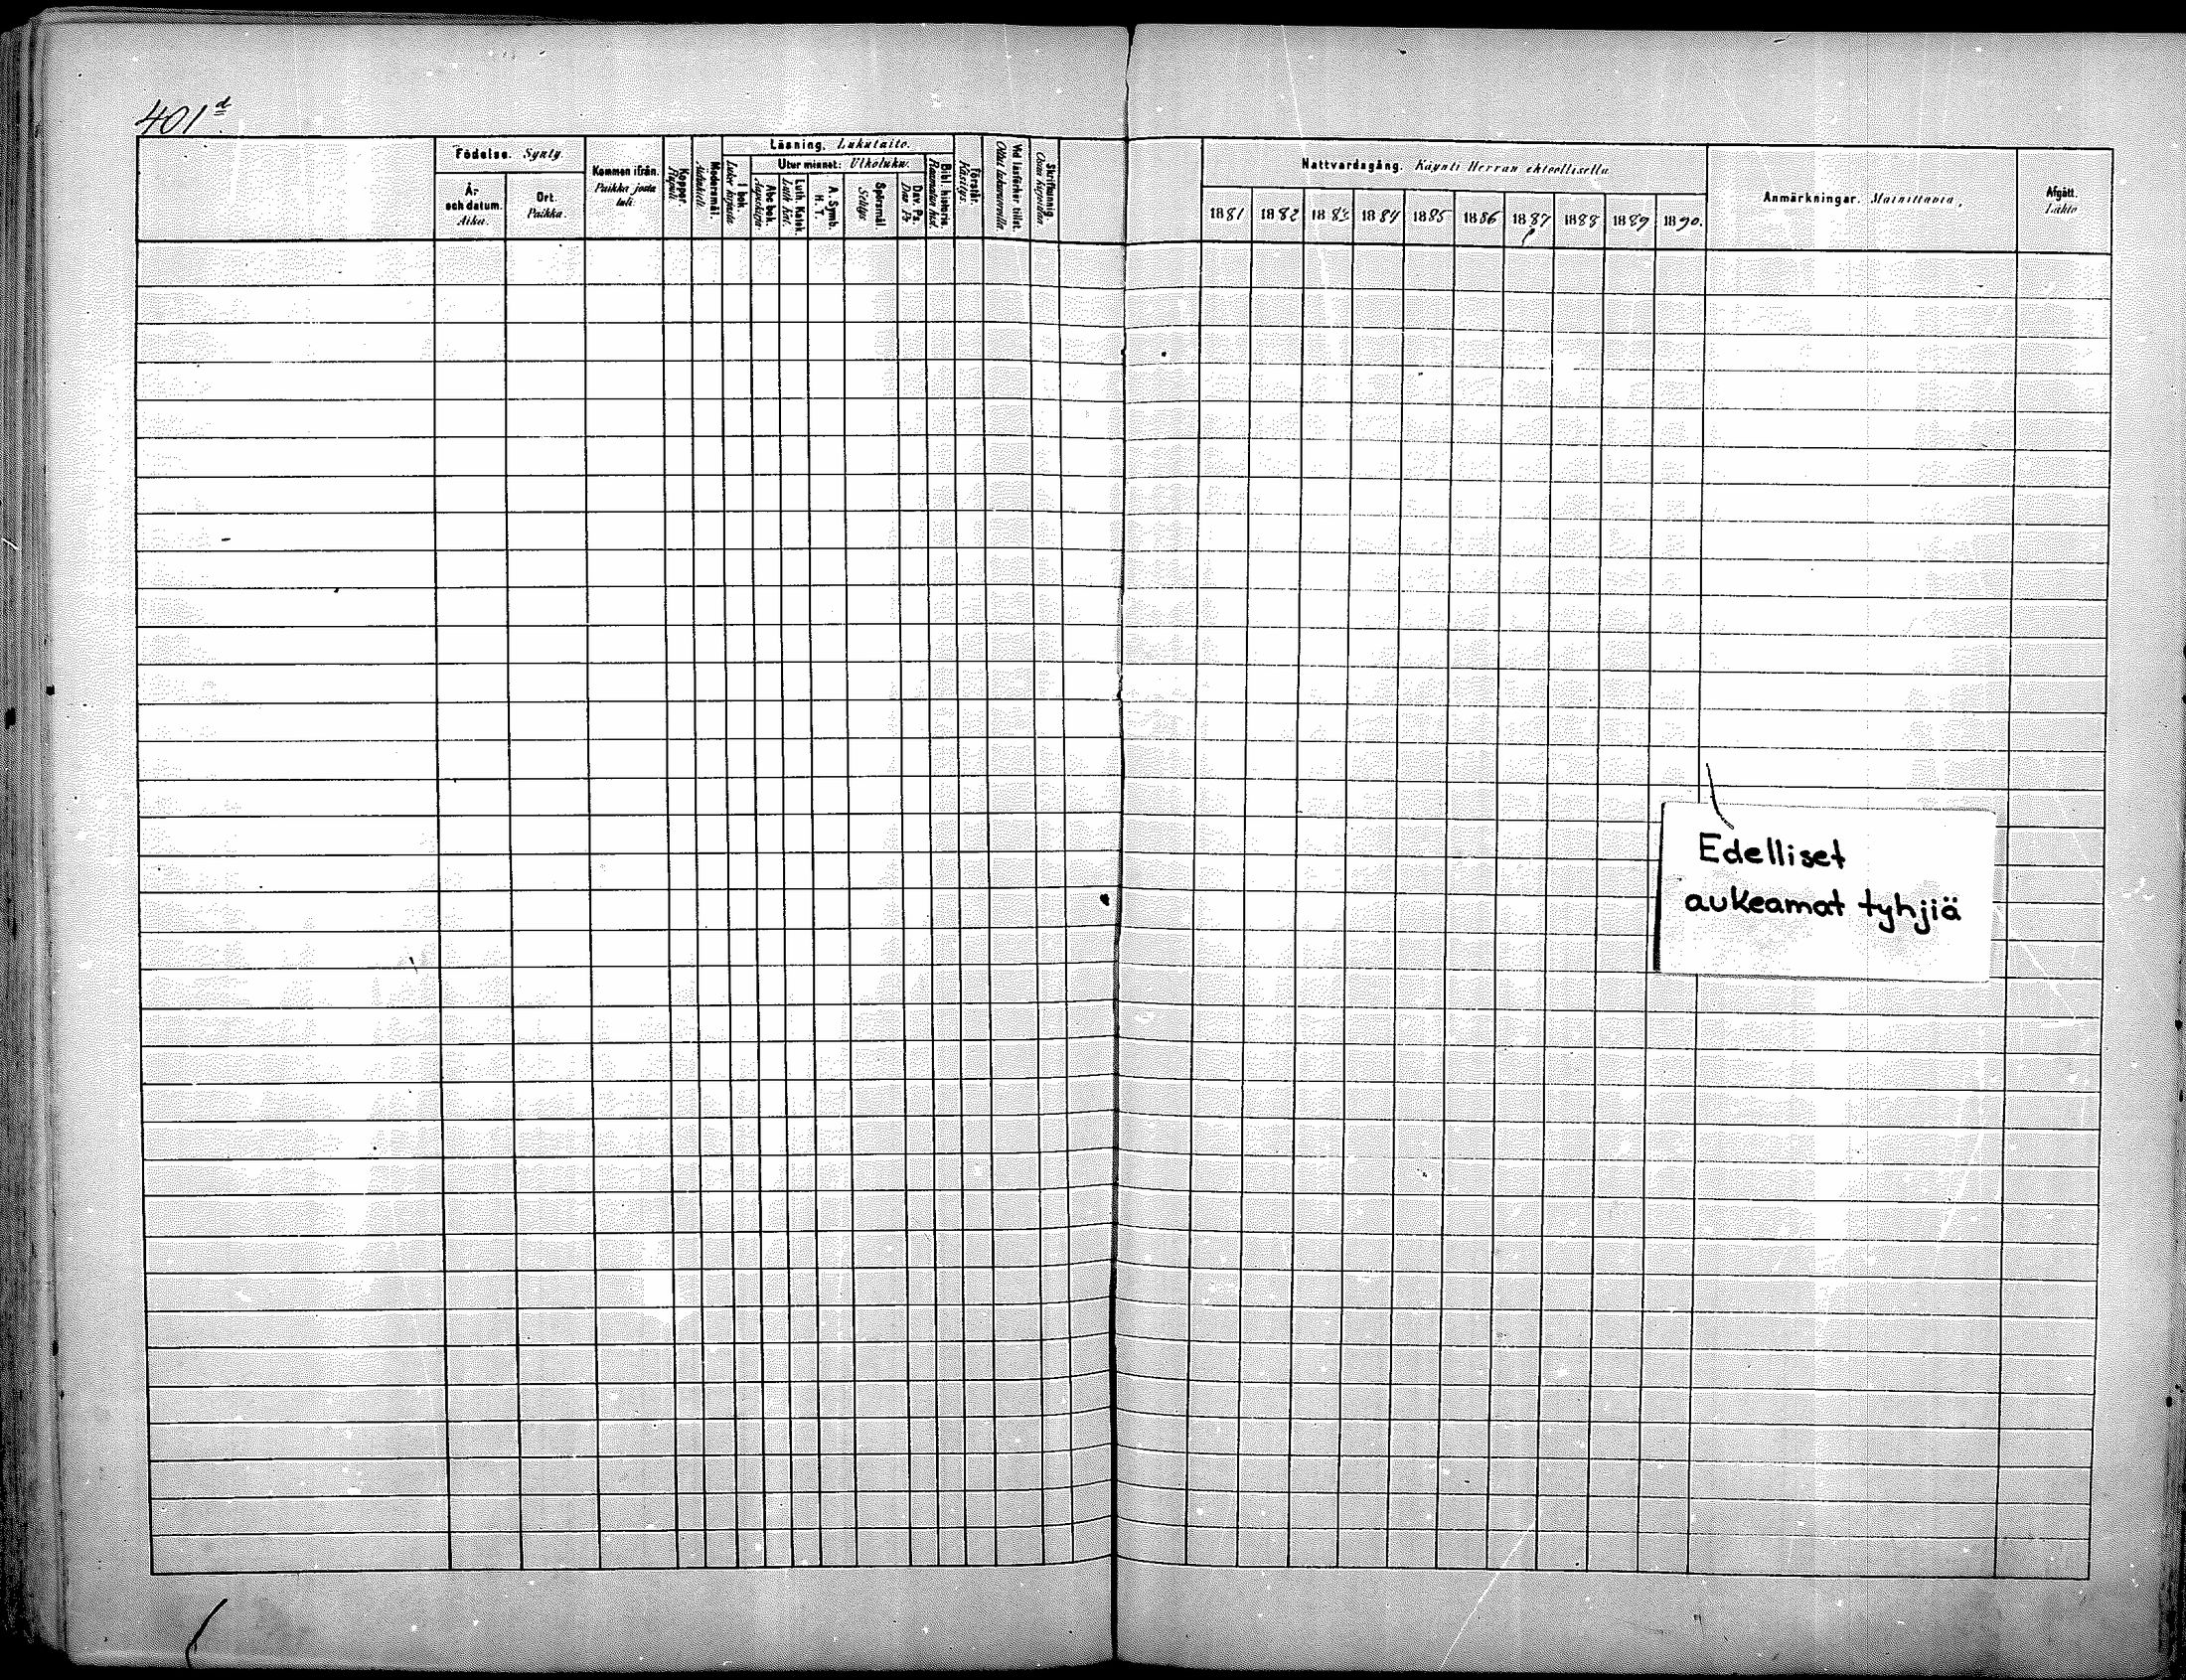 401 d
Födelse. Synty.
År och datum. Aika.
Ort. Paikka.
Kommen ifrån. Paikka josta tuli.
Koppor. Rupuli.
Modersmål. Äidinkieli.
Läsning. Lukutaito.
I bok. Luku kirjasta
Utur minnet: Ulkoluku.
Abc bok. Aapiskirja
Luth. Katek. Luth. Kat.
A. Symb. H. T.
Spörsmål. Selitys
Dav. Ps. Dav. Ps
Bibl. historia. Raamatun hist.
Förstår. Käsitys.
Vid läsförhör tillst. Ollut lukuluvuilla
Skriftunnig.
Nattvardsgång. Käynti Herran ehtoollisella
1881 1882 1883 1884 1885 1886 1887 1888 1889 1890.
Anmärkningar. Mainittavia,
Afgått. Lähtö
Edelliset
aukeamat tyhjiä